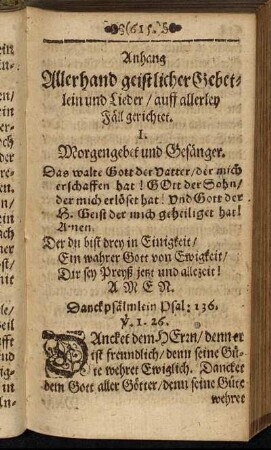 615.
Anhang
Allerhand geistlicher Gebet-
lein und Lieder / auff allerley
Fäll gerichtet.
I.
Morgengebet und Gesänger.
Das walte Gott der Vatter / der mich
erschaffen hat! GOtt der Sohn /
der mich erlöset hat! Und Gott der
H. Geist der mich geheiliget hat!
Amen.
Der du bist drey in Einigkeit /
Ein wahrer Gott von Ewigkeit /
Dir sey Preyß jetzt und allezeit!
A M E N.
Danckpsälmlein Psal: 136.
v. 1. 26.
DAncket dem HErrn / denn er
ist freundlich / denn seine Gü-
te wehret Ewiglich. Dancket
dem Gott aller Götter / denn seine Güte
wehret